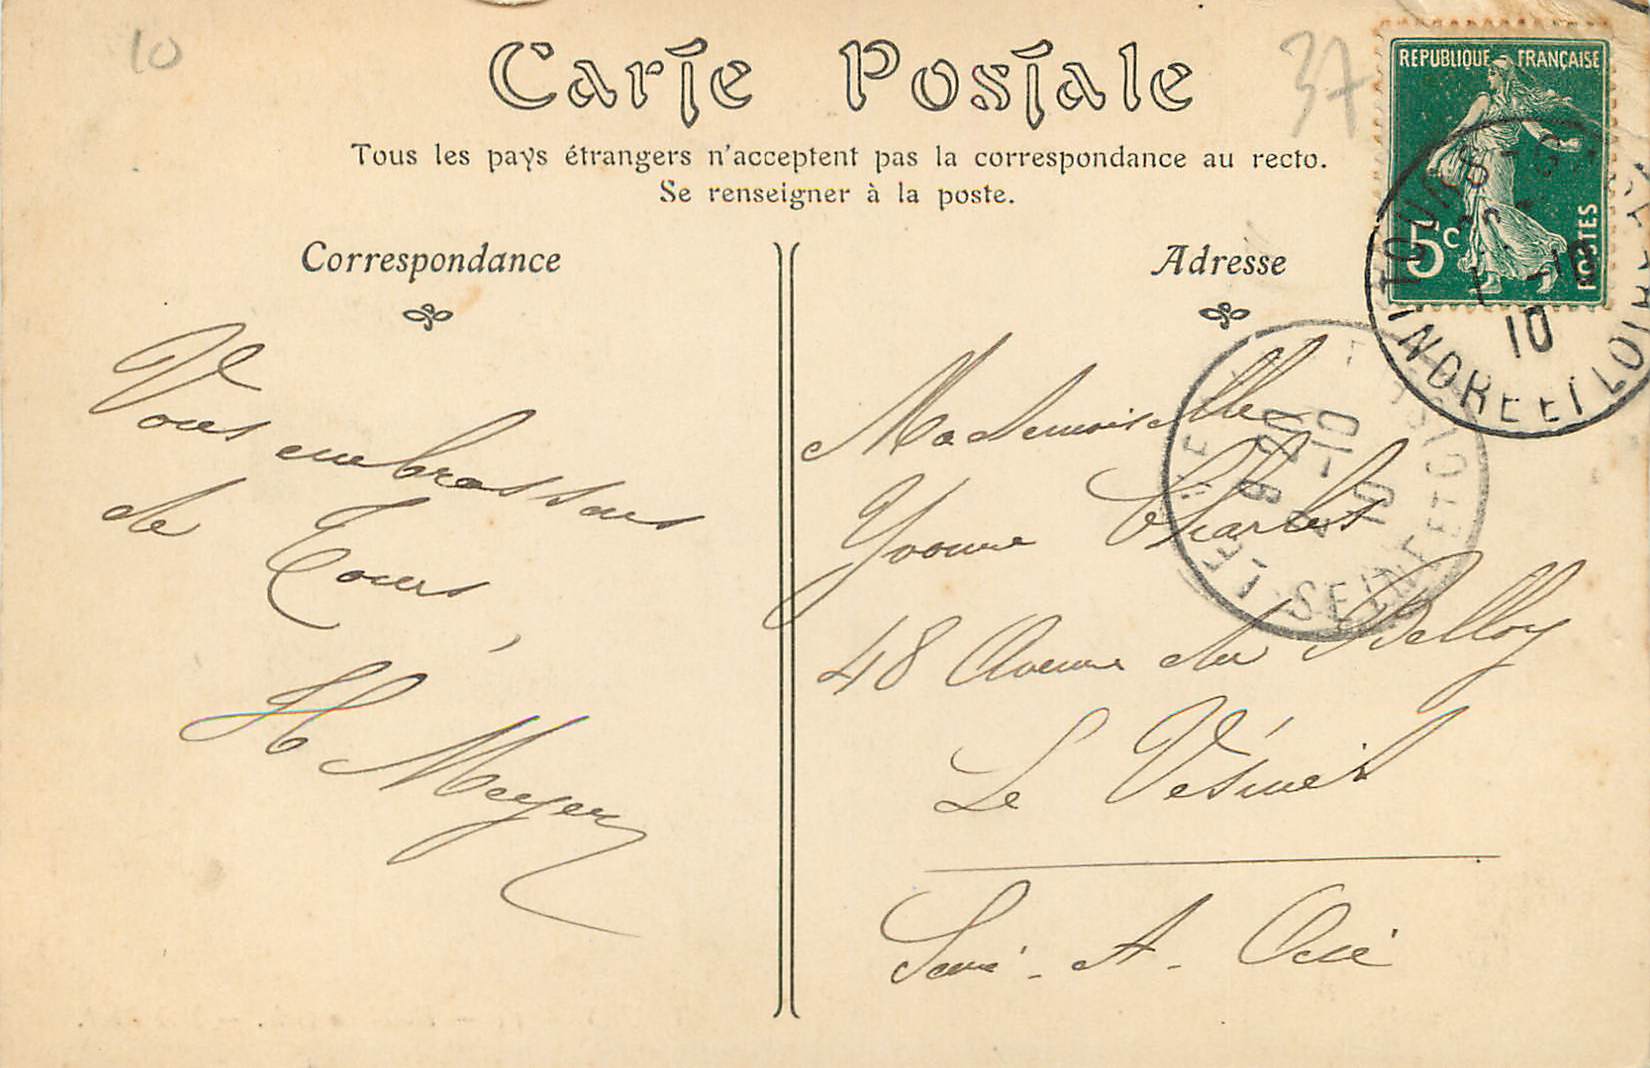 10
Carte Postale
37
Tous les pays étrangers n'acceptent pas la correspondance au recto.
Se renseigner à la poste.
REPUBLIQUE FRANÇAISE
5c
POSTES
TOURS
10
INDRE ET LOIRE
Correspondance
Vous embrassons
de Tours,
H Meyer
Adresse
Mademoiselle
Yvonne Charles
48 Avenue du Belloy
Le Vésinet
Seine-A-Oise
LE VE
8 20
2 -10
10
SEINE ET OISE